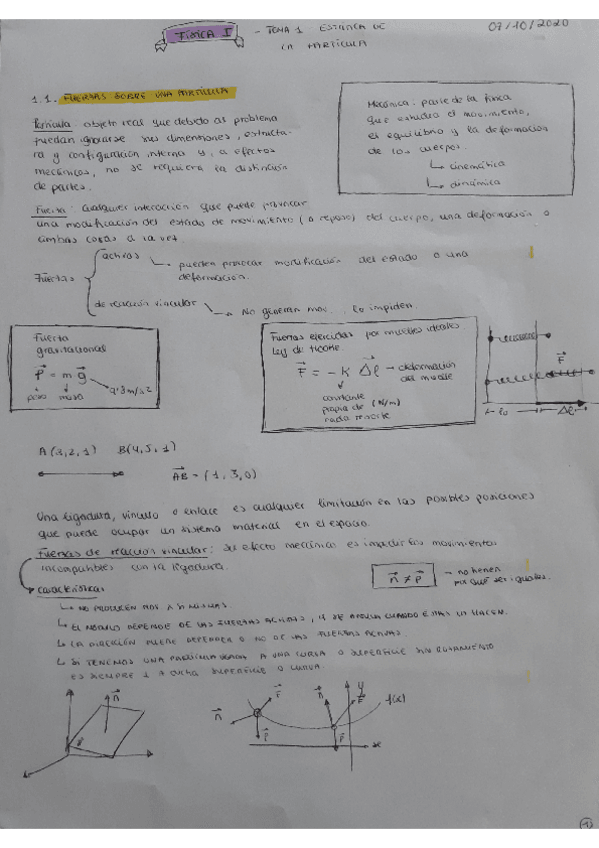 FÍSICA I - TEMA 1 ESTÁTICA DE
LA PARTÍCULA
07/10/2020
1.1. FUERZAS SOBRE UNA PARTÍCULA
Partícula: objeto real que debido al problema
puedan ignorarse sus dimensiones, estructu-
ra y configuración interna y, a efectos
mecánicos, no se requiera la distinción
de partes.
Mecánica: parte de la física
que estudia el movimiento,
el equilibrio y la deformación
de los cuerpos.
↳ cinemática
↳ dinámica
Fuerza: cualquier interacción que puede provocar
una modificación del estado de movimiento (o reposo) del cuerpo, una deformación o
ambas cosas a la vez
Fuerzas
activas ↳ pueden provocar modificación del estado o una
deformación.
de reacción vincular → No generan mov... lo impiden.
Fuerza
gravitacional
P = m g
9'8 m/s²
peso masa
Fuerzas ejercidas por muelles ideales.
Ley de Hooke.
F = - K Δl → deformación
del muelle
constante
propia de (N/m)
cada resorte
F
l₀ Δl
A(3,2,1) B(4,5,1)
AB = (1,3,0)
Una ligadura, vínculo o enlace es cualquier limitación en las posibles posiciones
que puede ocupar un sistema material en el espacio.
Fuerzas de reacción vincular: Su efecto mecánico es impedir los movimientos
incompatibles con la ligadura.
n ≠ P → no tienen
por qué ser iguales.
características
↳ NO PRODUCEN MOV A SI MISMAS.
↳ EL MÓDULO DEPENDE DE LAS FUERZAS ACTIVAS, Y SE ANULA CUANDO ESTAS LO HACEN.
↳ LA DIRECCIÓN PUEDE DEPENDER O NO DE LAS FUERZAS ACTIVAS.
↳ SI TENEMOS UNA PARTÍCULA LIGADA A UNA CURVA O SUPERFICIE SIN ROZAMIENTO
ES SIEMPRE ⊥ A DICHA SUPERFICIE O CURVA.
n
n F P
n F P
y
x
f(x)
1